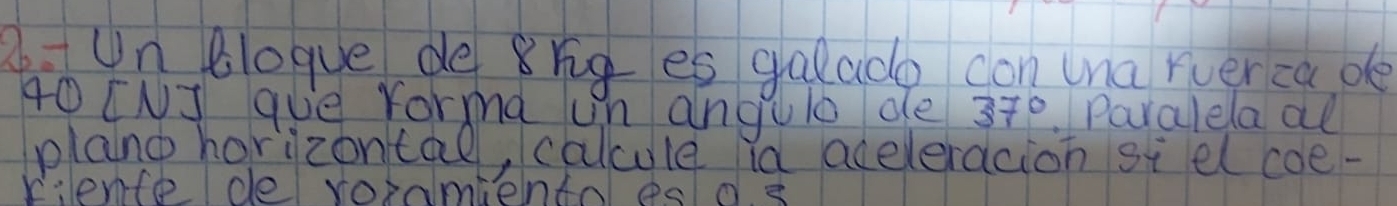 2.- Un bloque de 8 kg es galado con una fuerza de
40 [N] que forma un angulo de 37°. Paralela al
plano horizontal, calcule la aceleración si el coe-
fiente de rozamiento es 0.3